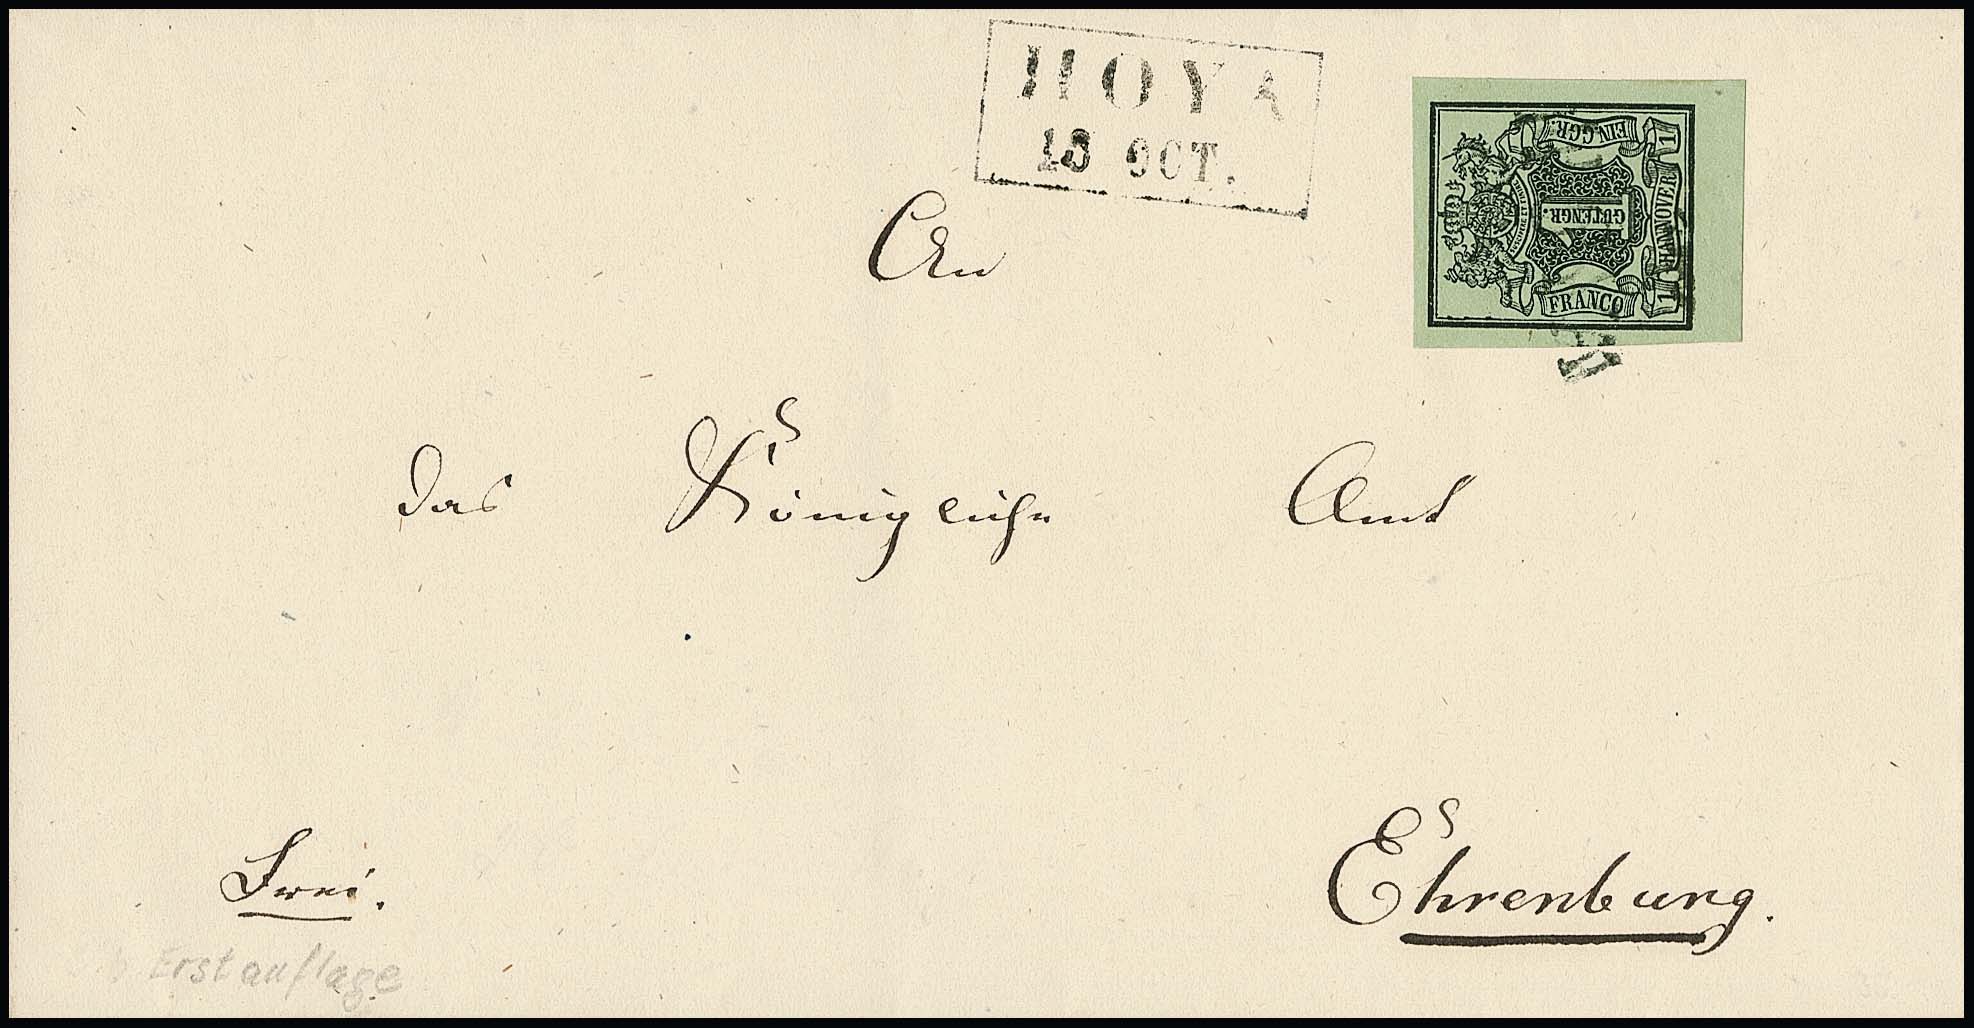 HOYA
13 OCT.
EIN.GGR.
1 HANNOVER 1
1
GUTENGR.
FRANCO
An
das Königliche Amt
Ehrenburg.
Frei.
Erstauflage